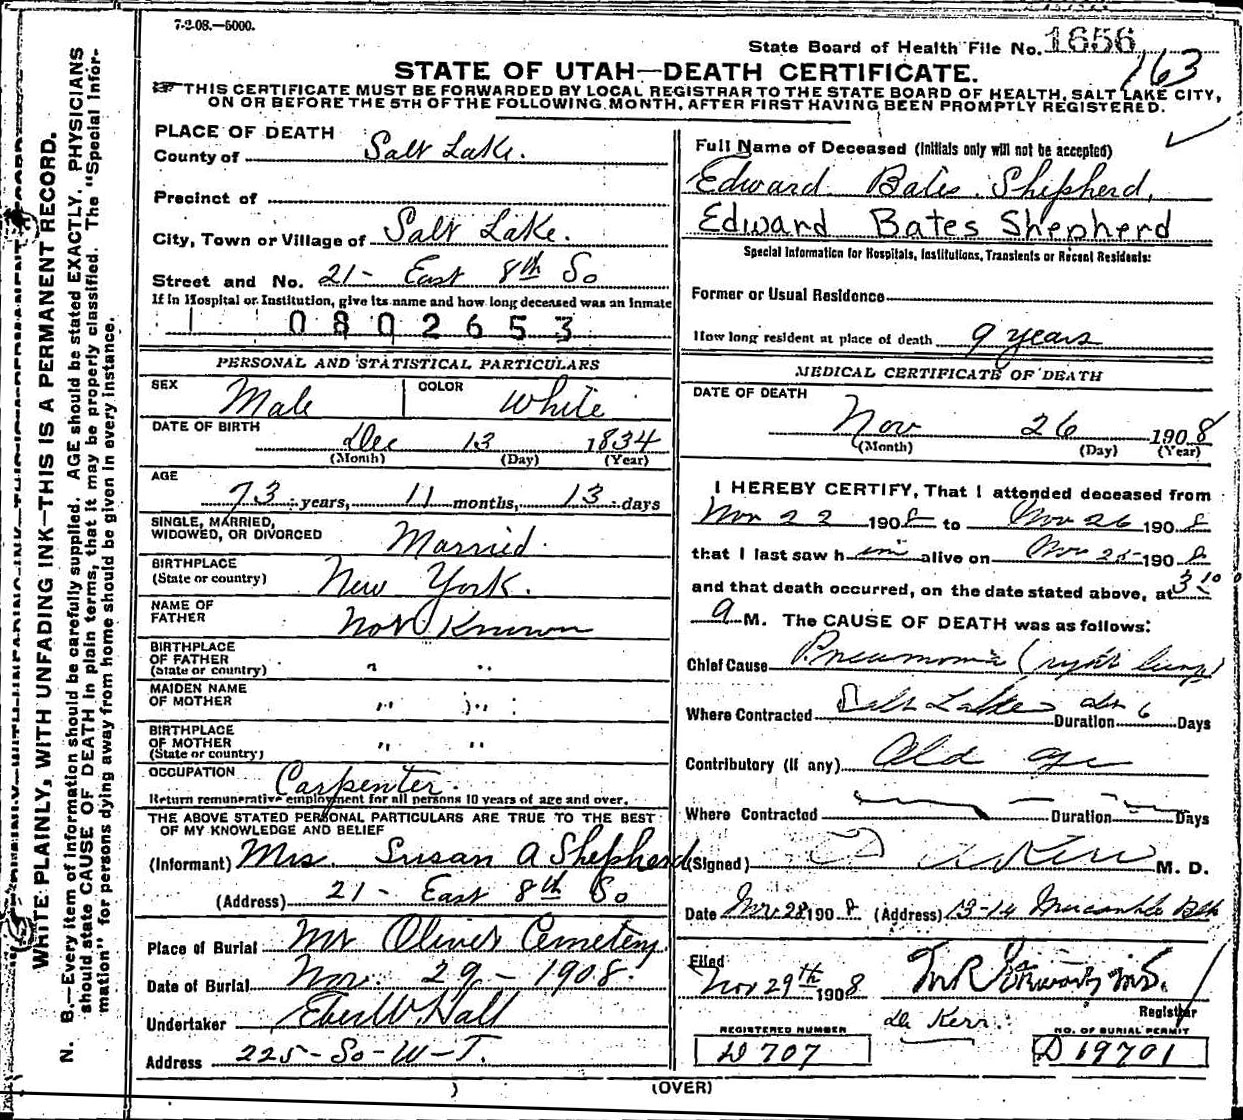 7-2-08.—5000.
State Board of Health File No. 1656
163
STATE OF UTAH—DEATH CERTIFICATE.
THIS CERTIFICATE MUST BE FORWARDED BY LOCAL REGISTRAR TO THE STATE BOARD OF HEALTH, SALT LAKE CITY,
ON OR BEFORE THE 5TH OF THE FOLLOWING MONTH, AFTER FIRST HAVING BEEN PROMPTLY REGISTERED.
WRITE PLAINLY, WITH UNFADING INK—THIS IS A PERMANENT RECORD.
N. B.—Every item of information should be carefully supplied. AGE should be stated EXACTLY. PHYSICIANS
should state CAUSE OF DEATH in plain terms, that it may be properly classified. The "Special Infor-
mation" for persons dying away from home should be given in every instance.
PLACE OF DEATH
County of Salt Lake.
Precinct of
City, Town or Village of Salt Lake.
Street and No. 21- East 8th So
If in Hospital or Institution, give its name and how long deceased was an inmate
0802653
PERSONAL AND STATISTICAL PARTICULARS
SEX Male COLOR White
DATE OF BIRTH
Dec 13 1834
(Month) (Day) (Year)
AGE
73 years, 11 months, 13 days
SINGLE, MARRIED,
WIDOWED, OR DIVORCED Married.
BIRTHPLACE
(State or country) New York.
NAME OF
FATHER Not Known
BIRTHPLACE
OF FATHER
(State or country) " "
MAIDEN NAME
OF MOTHER " "
BIRTHPLACE
OF MOTHER
(State or country) " "
OCCUPATION Carpenter.
Return remunerative employment for all persons 10 years of age and over.
THE ABOVE STATED PERSONAL PARTICULARS ARE TRUE TO THE BEST
OF MY KNOWLEDGE AND BELIEF
(Informant) Mrs. Susan A Shepherd
(Address) 21- East 8th So
Place of Burial Mt Olivet Cemetery
Date of Burial Nov. 29-1908.
Undertaker Eber W. Hall
Address 225-So-W-T.
Full Name of Deceased (Initials only will not be accepted)
Edward Bates Shepherd,
Edward Bates Shepherd
Special Information for Hospitals, Institutions, Transients or Recent Residents:
Former or Usual Residence
How long resident at place of death 9 years
MEDICAL CERTIFICATE OF DEATH
DATE OF DEATH
Nov 26 1908
(Month) (Day) (Year)
I HEREBY CERTIFY, That I attended deceased from
Nov 22 1908 to Nov 26 1908
that I last saw him alive on Nov 25 1908
and that death occurred, on the date stated above, at 3 10
a M. The CAUSE OF DEATH was as follows:
Chief Cause Pneumonia (right lung)
Where Contracted Salt Lake Duration abt 6 Days
Contributory (if any) Old age
Where Contracted Duration Days
(Signed) Kerr M. D.
Date Nov 28 1908 (Address) 13-14 Mercantile Blk
Filed
Nov 29th 1908 M.D.
Registrar
Dr Kerr.
REGISTERED NUMBER
D 707
NO. OF BURIAL PERMIT
D 19701
(OVER)